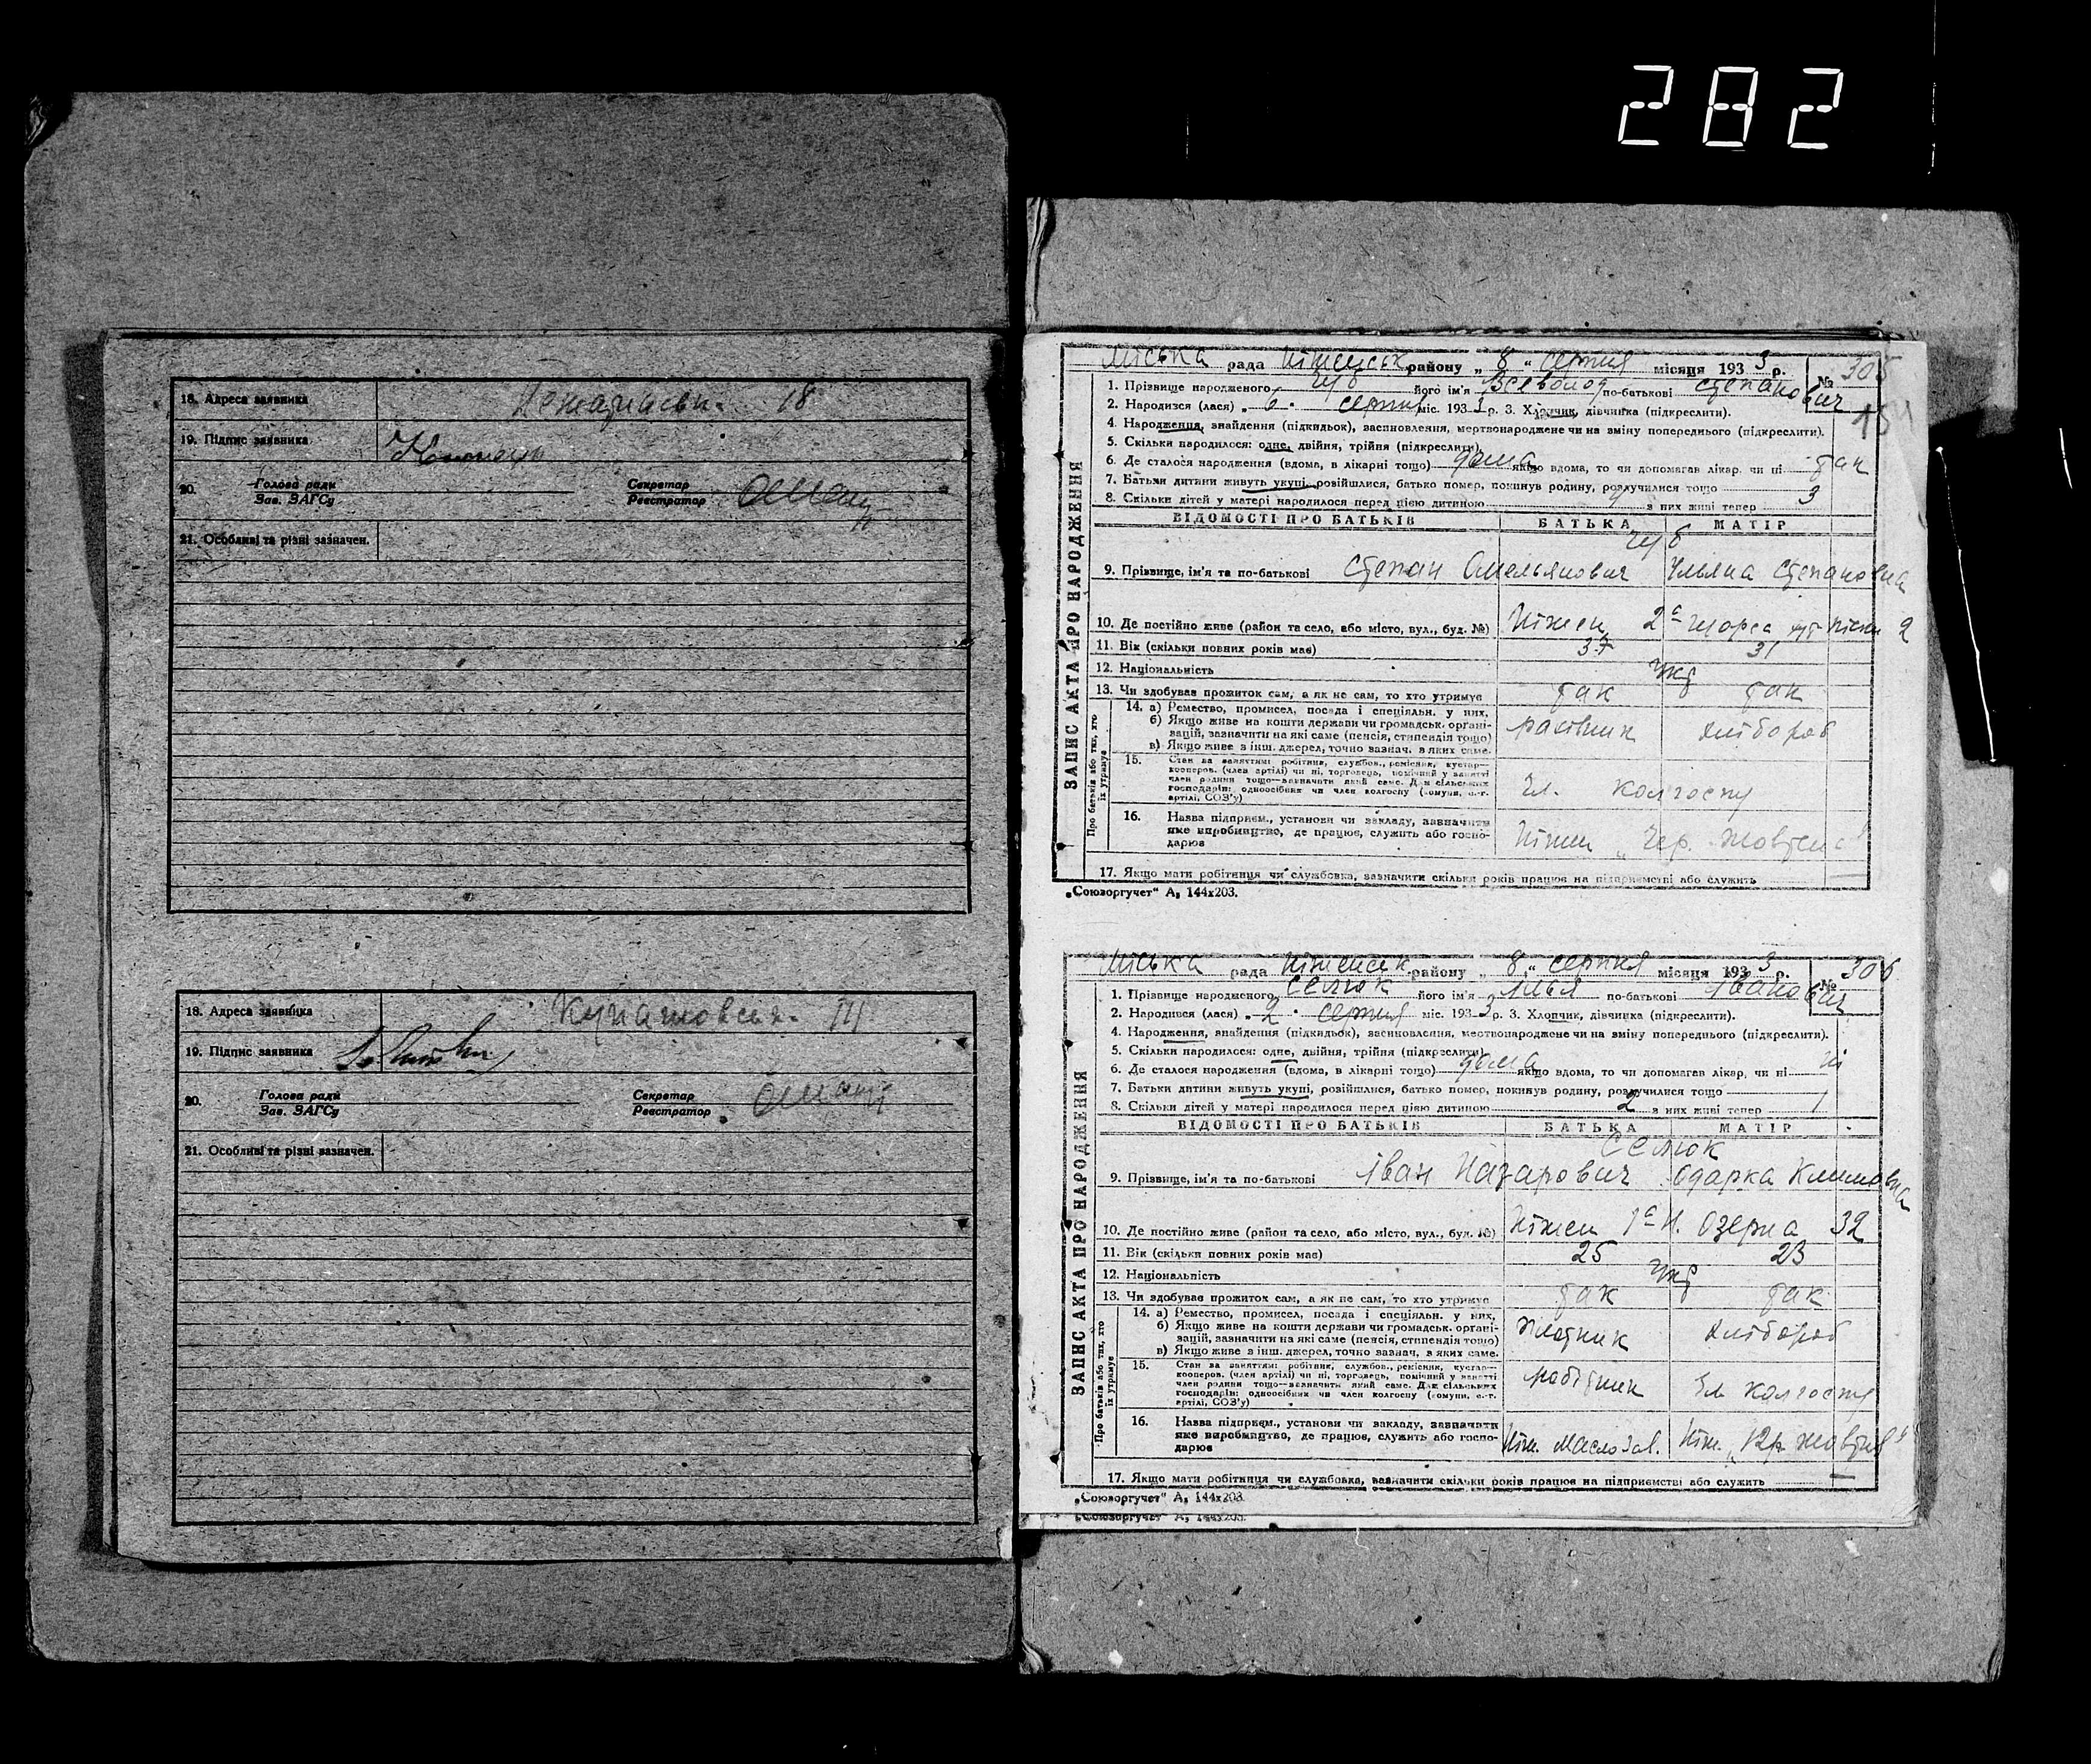 282
18. Адреса заявника 18
19. Підпис заявника
20. Голова ради Секретар
Зав. ЗАГСу Реєстратор
21. Особливі та різні зазначен.
18. Адреса заявника
19. Підпис заявника
20. Голова ради Секретар
Зав. ЗАГСу Реєстратор
21. Особливі та різні зазначен.
ЗАПИС АКТА ПРО НАРОДЖЕННЯ
Міська рада Ніженськ району „ 8 “ серпня місяця 193 3 р. № 305
1. Прізвище народженого його ім'я Всеволод по-батькові Степанович
2. Народився (лася) „ 6 “ серпня міс. 193 3 р. 3. Хлопчик, дівчинка (підкреслити).
4. Народження, знайдення (підкидьок), васиновлення, мертвонароджене чи на зміну попереднього (підкреслити).
5. Скільки народилося: одне, двійня, трійня (підкреслити)
6. Де сталося народження (вдома, в лікарні тощо) дома якщо вдома, то чи допомагав лікар, чи ні так
7. Батьки дитини живуть укупі, розійшлися, батько помер, покинув родину, розлучилися тощо
8. Скільки дітей у матері народилося перед цією дитиною 4 з них живі тепер 3
ВІДОМОСТІ ПРО БАТЬКІВ БАТЬКА МАТІР
9. Прізвище, ім'я та по-батькові Степан Омельянович Ульяна Степановна
10. Де постійно живе (район та село, або місто, вул., буд. №) Ніжен 2а Щорса 2
11. Вік (скільки повних років має) 37 31
12. Національність Укр
13. Чи здобуває прожиток сам, а як не сам, то хто утримує так так
Про батьків або тих, хто їх утримує
14. а) Ремество, промисел, посада і спеціяльн. у них,
б) Якщо живе на кошти держави чи громадськ. органі-
зацій, зазначити на які саме (пенсія, стипендія тощо)
в) Якщо живе з інш. джерел, точно вазнач. з яких саме.
хлібороб
15. Стан за заняттям: робітник, службов., ремісник, кустар—
кооперов. (член артілі) чи ні, торговець, помічний у занятті
член родини тощо—зазначити який саме. Для сільських
господарів: одноосібник чи член колгоспу (комуни, с.-г.
артілі, СОЗ'у)
Чл. колгоспу
16. Назва підприєм., установи чи закладу, зазначити
яке виробництво, де працює, служить або госпо-
дарює
Ніжен „Чер. Жовтень“
17. Якщо мати робітниця чи службовка, зазначити скільки років працює на підприємстві або служить
„Союзоргучет“ А₅ 144х203.
ЗАПИС АКТА ПРО НАРОДЖЕННЯ
Міська рада Ніженськ району „ 8 “ серпня місяця 193 3 р. № 306
1. Прізвище народженого Селюк його ім'я Ілья по-батькові Іванович
2. Народився (лася) „ 2 “ серпня міс. 193 3 р. 3. Хлопчик, дівчинка (підкреслити).
4. Народження, знайдення (підкидьок), васиновлення, мертвонароджене чи на зміну попереднього (підкреслити).
5. Скільки народилося: одне, двійня, трійня (підкреслити)
6. Де сталося народження (вдома, в лікарні тощо) дома якщо вдома, то чи допомагав лікар, чи ні ні
7. Батьки дитини живуть укупі, розійшлися, батько помер, покинув родину, розлучилися тощо
8. Скільки дітей у матері народилося перед цією дитиною 2 з них живі тепер 1
ВІДОМОСТІ ПРО БАТЬКІВ БАТЬКА МАТІР
Селюк
9. Прізвище, ім'я та по-батькові Іван Назарович Одарка Климовна
10. Де постійно живе (район та село, або місто, вул., буд. №) Ніжен 1а Н. Озерна 32
11. Вік (скільки повних років має) 25 23
12. Національність Укр
13. Чи здобуває прожиток сам, а як не сам, то хто утримує так так
Про батьків або тих, хто їх утримує
14. а) Ремество, промисел, посада і спеціяльн. у них,
б) Якщо живе на кошти держави чи громадськ. органі-
зацій, зазначити на які саме (пенсія, стипендія тощо)
в) Якщо живе з інш. джерел, точно вазнач. з яких саме.
Плотник хлібороб
15. Стан за заняттям: робітник, службов., ремісник, кустар—
кооперов. (член артілі) чи ні, торговець, помічний у занятті
член родини тощо—зазначити який саме. Для сільських
господарів: одноосібник чи член колгоспу (комуни, с.-г.
артілі, СОЗ'у)
робітник Чл колгоспу
16. Назва підприєм., установи чи закладу, зазначити
яке виробництво, де працює, служить або госпо-
дарює
Ніж. Маслозав. Ніж. „Кр. Жовтня“
17. Якщо мати робітниця чи службовка, зазначити скільки років працює на підприємстві або служить —
„Союзоргучет“ А₅ 144х203.
„Союзоргучет“ А₅ 144х203.